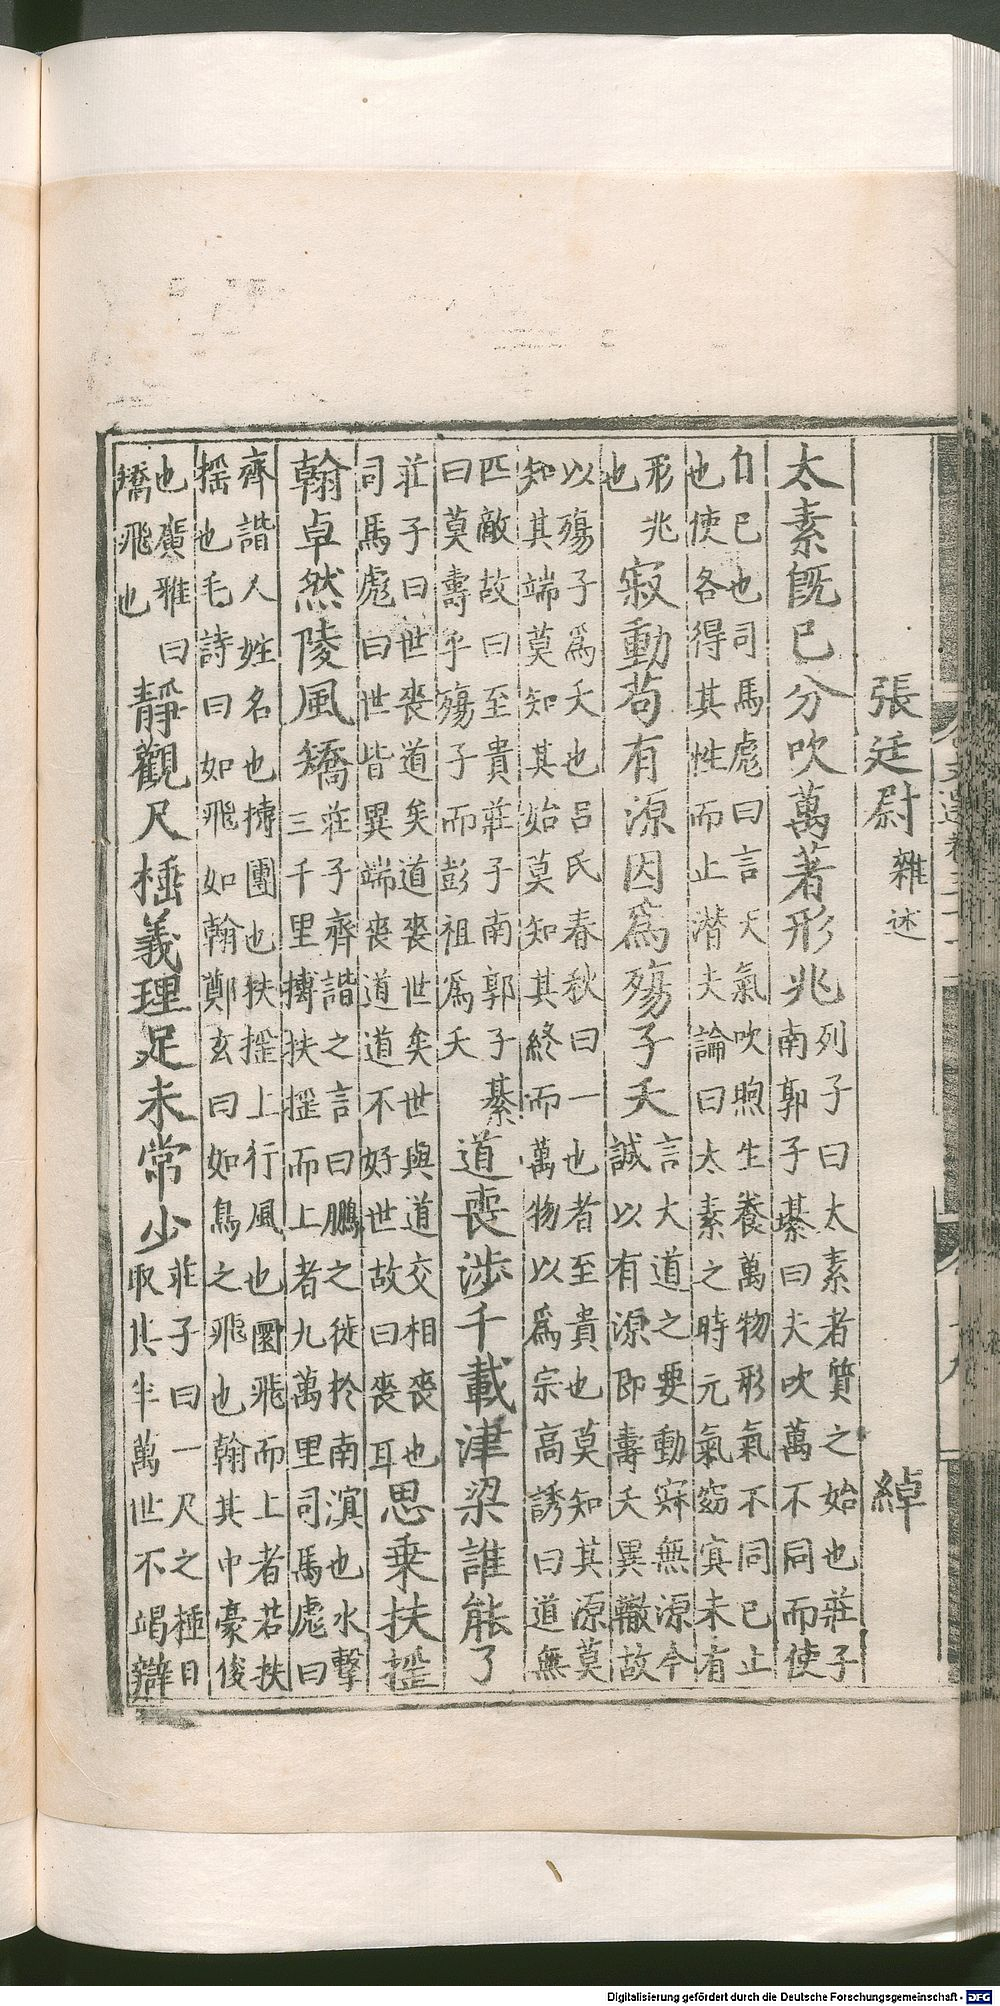 張廷尉 雜述 綽
太素旣已分吹萬著形兆
列子曰太素者質之始也莊子
南郭子綦曰夫吹萬不同而使
自已也司馬彪曰言天氣吹煦生養萬物形氣不同已止
也使各得其性而止潜夫論曰太素之時元氣窈冥未有
形兆
也
寂動苟有源因爲殤子夭
言大道之要動寂無源今
誠以有源即壽夭異轍故
以殤子爲夭也吕氏春秋曰一也者至貴也莫知其源莫
知其端莫知其始莫知其終而萬物以爲宗高誘曰道無
匹敵故曰至貴莊子南郭子綦
曰莫壽乎殤子而彭祖爲夭
道喪涉千載津梁誰能了
莊子曰世喪道矣道喪世矣世與道交相喪也
司馬彪曰世皆異端喪道道不好世故曰喪耳
思乗扶揺
翰卓然陵風矯
莊子齊諧之言曰鵬之徙於南溟也水擊
三千里摶扶揺而上者九萬里司馬彪曰
齊諧人姓名也摶團也扶揺上行風也圜飛而上者若扶
揺也毛詩曰如飛如翰鄭玄曰如鳥之飛也翰其中豪俊
也廣雅曰
矯飛也
靜觀尺棰義理足未常少
莊子曰一尺之棰日
取其半萬世不竭辯
Digitalisierung gefördert durch die Deutsche Forschungsgemeinschaft - DFG